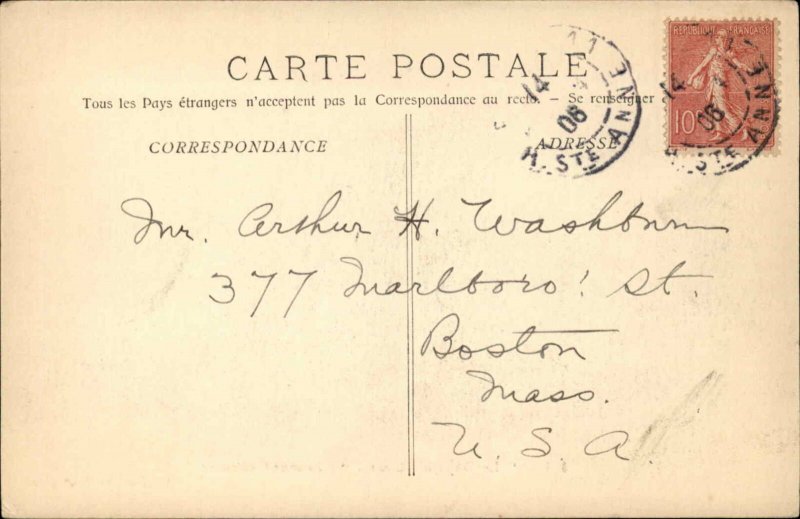 CARTE POSTALE
Tous les Pays étrangers n'acceptent pas la Correspondance au recto. – Se renseigner
CORRESPONDANCE
ADRESSE
RÉPUBLIQUE FRANÇAISE
10
14
11
06
STE ANNE
14
06
STE ANNE
Mr. Arthur H. Washburn
377 Marlboro' St.
Boston
Mass.
U. S. A.